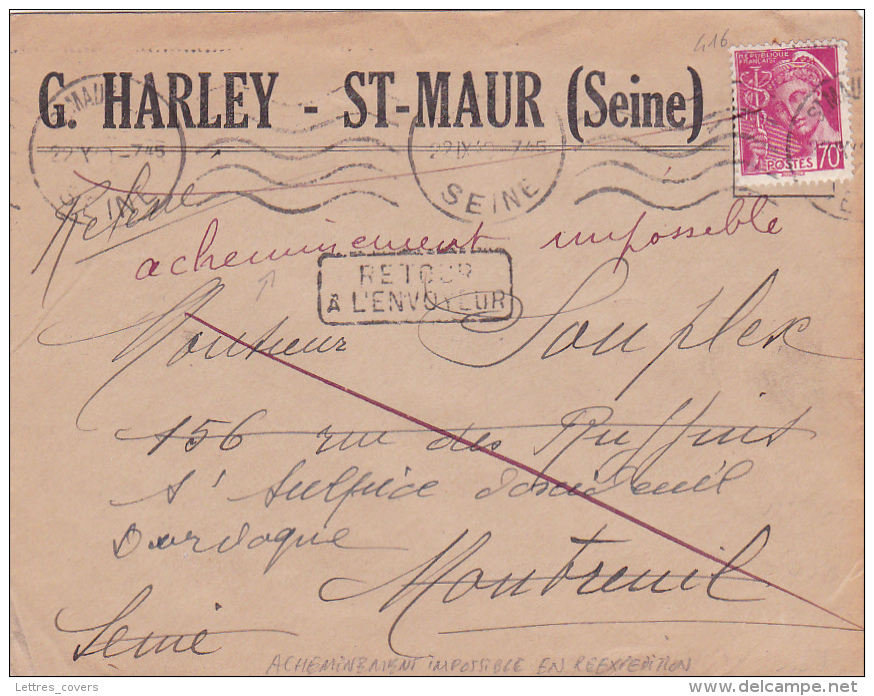 416
G. HARLEY - ST-MAUR (Seine)
RÉPUBLIQUE
FRANÇAISE
POSTES 70
22 IX 7 45
SEINE
acheminement impossible
RETOUR
A L'ENVOYEUR
Monsieur Souplex
156 rue des Ruffins
St Sulpice
Dordogne
Montreuil
Seine
ACHEMINEMENT IMPOSSIBLE EN REEXPEDITION
Lettres_covers
www.delcampe.net